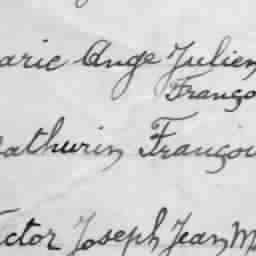 arie Ange Julien
Franço
athurin Françoi
ictor Joseph Jean M